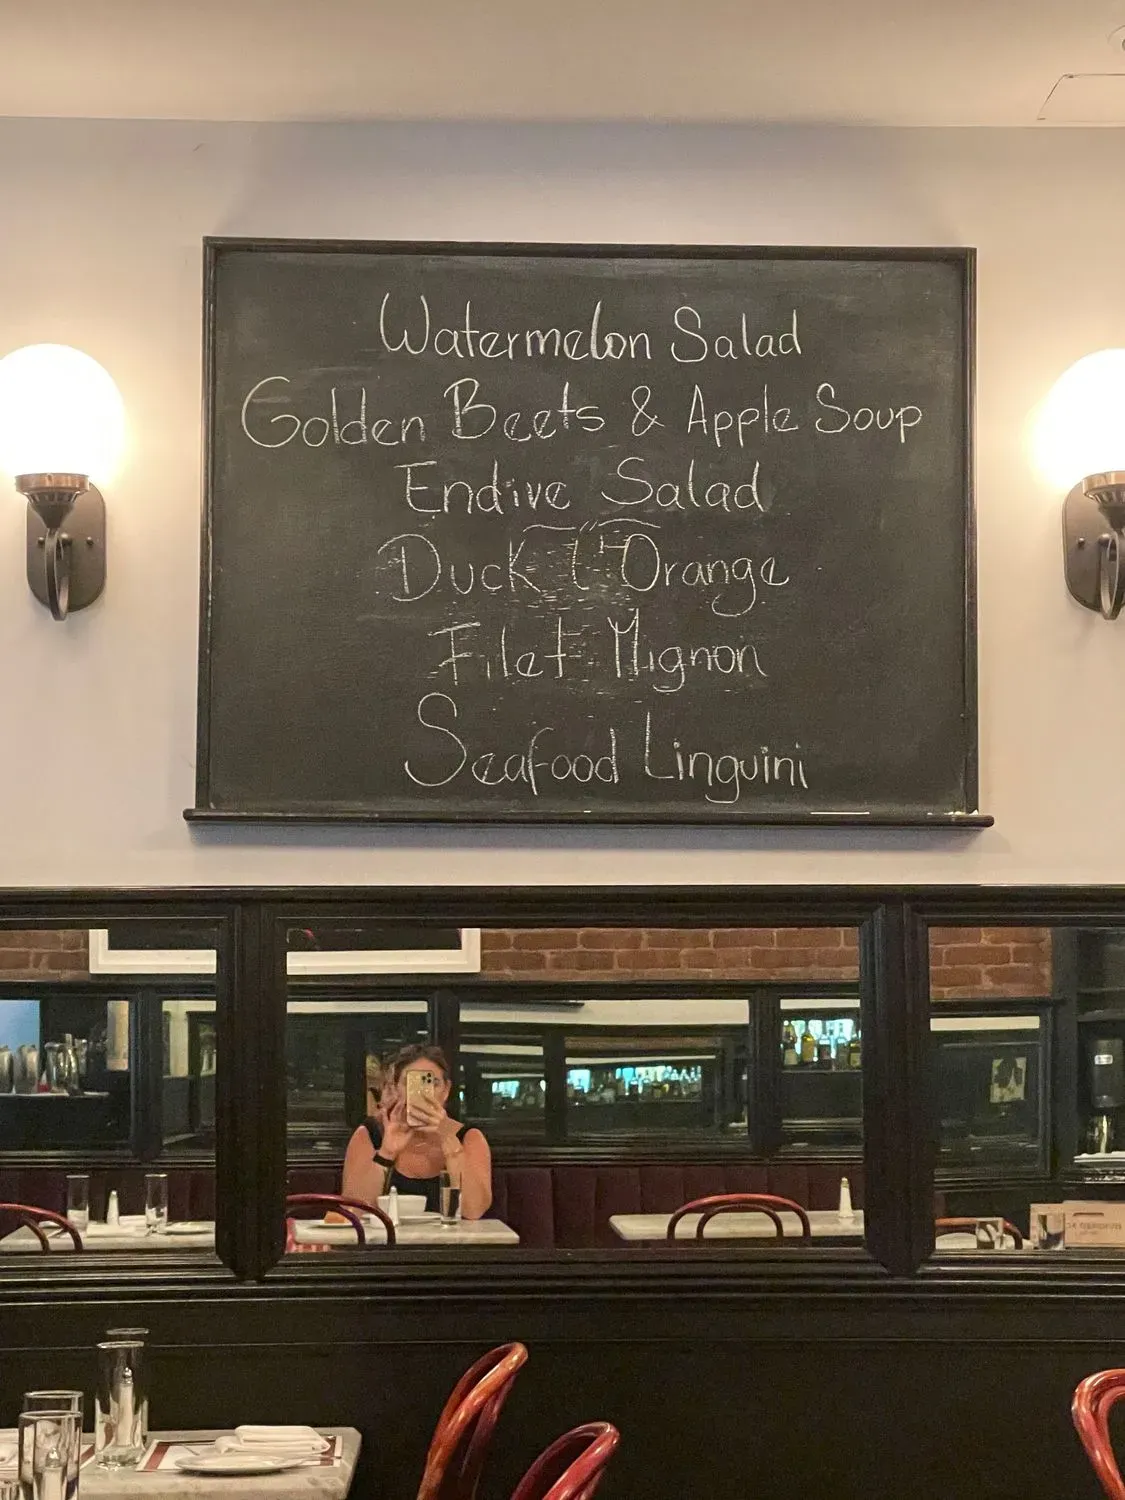 Watermelon Salad
Golden Beets & Apple Soup
Endive Salad
Duck l'Orange
Filet Mignon
Seafood Linguini